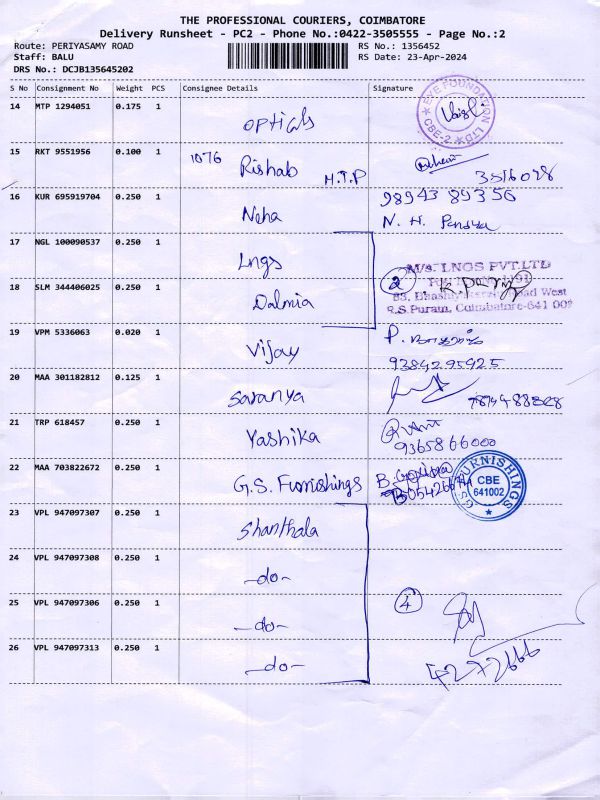 THE PROFESSIONAL COURIERS, COIMBATORE
Delivery Runsheet - PC2 - Phone No.:0422-3505555 - Page No.:2
Route: PERIYASAMY ROAD
RS No.: 1356452
Staff: BALU
RS Date: 23-Apr-2024
DRS No.: DCJB135645202
S No Consignment No Weight PCS Consignee Details Signature
14 MTP 1294051 0.175 1 opticals
EYE FOUNDATION LTD
CBE-2
15 RKT 9551956 0.100 1 1076 Rishab M.T.P
3516028
16 KUR 695919704 0.250 1 Neha
98943 89350
N. H. Pandya
17 NGL 100090537 0.250 1 Lngs
M/s. LNGS PVT.LTD
18 SLM 344406025 0.250 1 Dalmia
2
Road West
R.S.Puram, Coimbatore-641 002
19 VPM 5336063 0.020 1 Vijay
9384295425
20 MAA 301182812 0.125 1 Saranya
21 TRP 618457 0.250 1 Yashika
9365866000
22 MAA 703822672 0.250 1 G.S. Furnishings
G.S. FURNISHINGS
CBE
641002
23 VPL 947097307 0.250 1 Shanthala
24 VPL 947097308 0.250 1 -do-
25 VPL 947097306 0.250 1 -do-
4
26 VPL 947097313 0.250 1 -do-
4272666